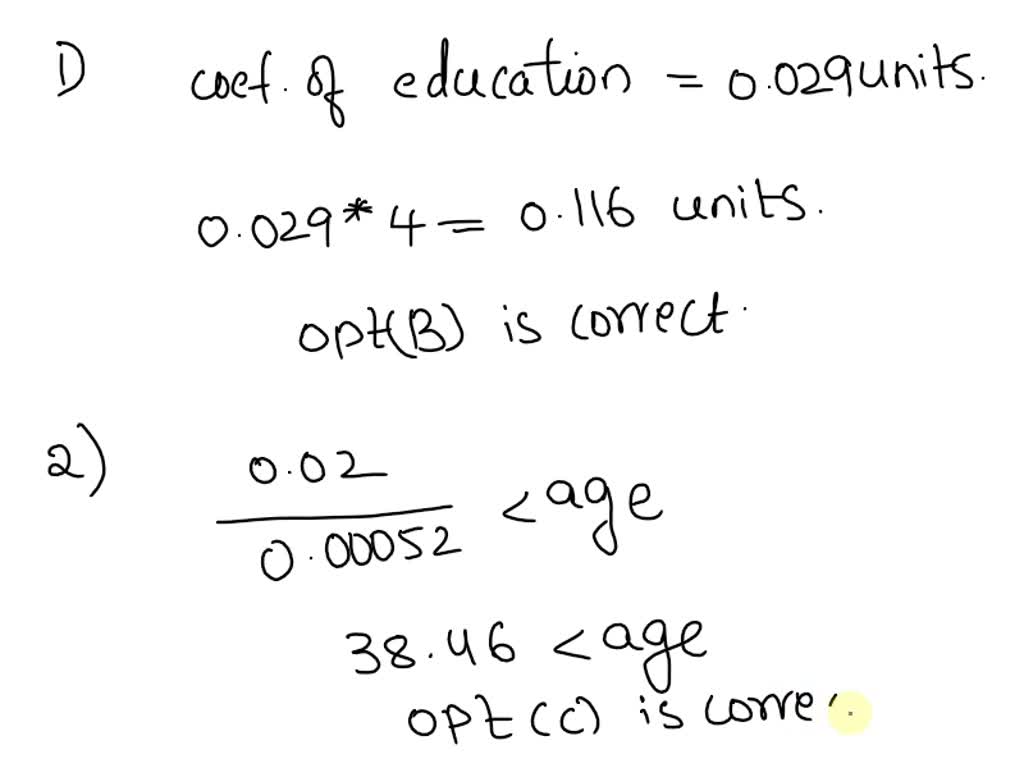 1) coef. of education = 0.029 units.
0.029 * 4 = 0.116 units.
opt(B) is correct.
2) 0.02
0.00052 < age
38.46 < age
opt(c) is corre